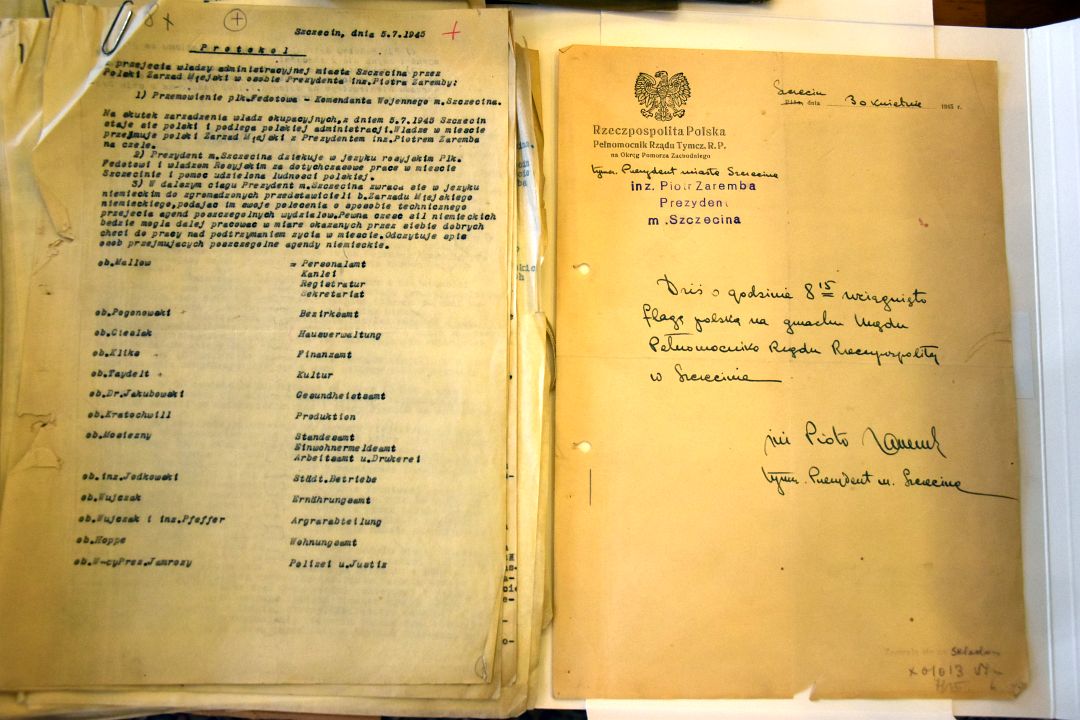 Szczecin, dnia 5.7.1945
Protokol
przejęcia władzy administracyjnej miasta Szczecina przez
Polski Zarzad Miejski w osobie Prezydenta inz.Piotra Zaremby:
1) Przemowienie plk.Fedotowa - Komendanta Wojennego m.Szczecina.
Na skutek zarzadzenia wladz okupacyjnych,z dniem 5.7.1945 Szczecin
staje sie polski i podlega polskiej administracji.Wladze w miescie
przejmuje polski Zarzad Miejski z Prezydentem inz.Piotrem Zaremba
na czele.
2) Prezydent m.Szczecina dziekuje w jezyku rosyjskim Plk.
Fedotowi i wladzom Rosyjskim za dotychczasowe prace w miescie
Szczecinie i pomoc udzielona ludnosci polskiej.
3) W dalszym ciagu Prezydent m.Szczecina zwraca sie w jezyku
niemieckim do zgromadzonych przedstawicieli b.Zarzadu Miejskiego
niemieckiego,podajac im swoje polecenia o sposobie technicznego
przejecia agend poszczegolnych wydzialow.Pewna czesc sil niemieckich
bedzie mogla dalej pracowac w miare okazanych przez siebie dobrych
checi do pracy nad podtrzymaniem zycia w miescie.Odczytuje spis
osob przejmujacych poszczegolne agendy niemieckie.
ob.Mallow = Personalamt
Kanlei
Registratur
Sekretariat
ob.Pogonowski Bezirksamt
ob.Cieslak Hausverwaltung
ob.Klike Finanzamt
ob.Taydelt Kultur
ob.Dr.Jakubowski Gesundheitsamt
ob.Kratochwill Produktion
ob.Mosiezny Standesamt
Einwohnermeldeamt
Arbeitsamt u.Drukerei
ob.inz.Jodkowski Städt.Betriebe
ob.Wujczak Ernährungsamt
ob.Wujczak i inz.Pfeffer Argrarabteilung
ob.Hoppe Wohnungsamt
ob.W-cyPrez.Jamrozy Polizei u.Justiz
Szczecin
dnia 30 kwietnia 1945 r.
Rzeczpospolita Polska
Pełnomocnik Rządu Tymcz. R.P.
na Okręg Pomorza Zachodniego
tymcz. Prezydent miasta Szczecina
inz. Piotr Zaremba
Prezydent
m.Szczecina
Dziś o godzinie 8 15 wciągnięto
flagę polską na gmachu Urzędu
Pełnomocnika Rządu Rzeczpospolitej
w Szczecinie
inż Piotr Zaremba
tymcz. Prezydent m. Szczecina